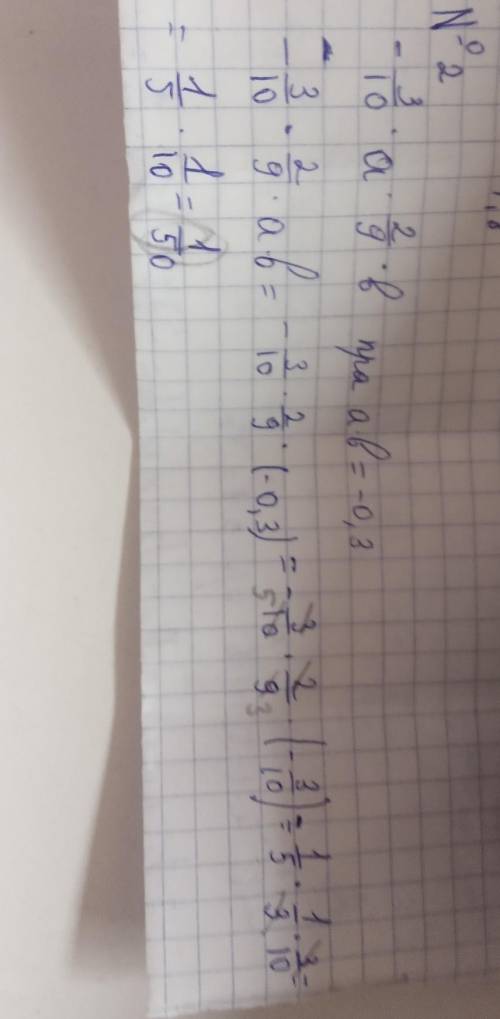 № 2
- 3/10 · a · 2/9 · b при ab = -0,3
- 3/10 · 2/9 · ab = - 3/10 · 2/9 · (-0,3) = - 3/10 5 · 2/9 3 · (- 3/10) = 1/5 · 1/3 · 3/10 =
= 1/5 · 1/10 = 1/50